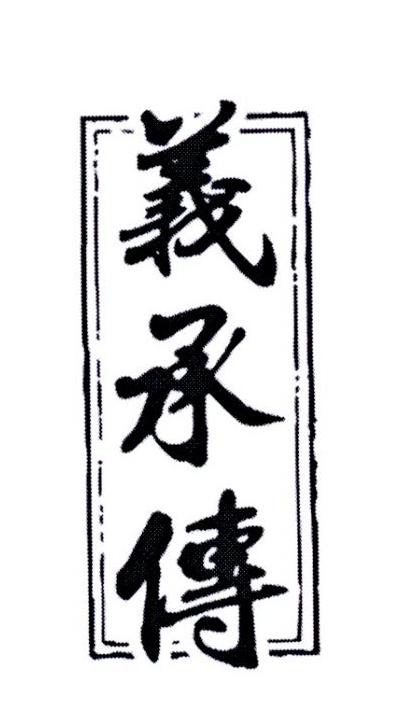 義承傳